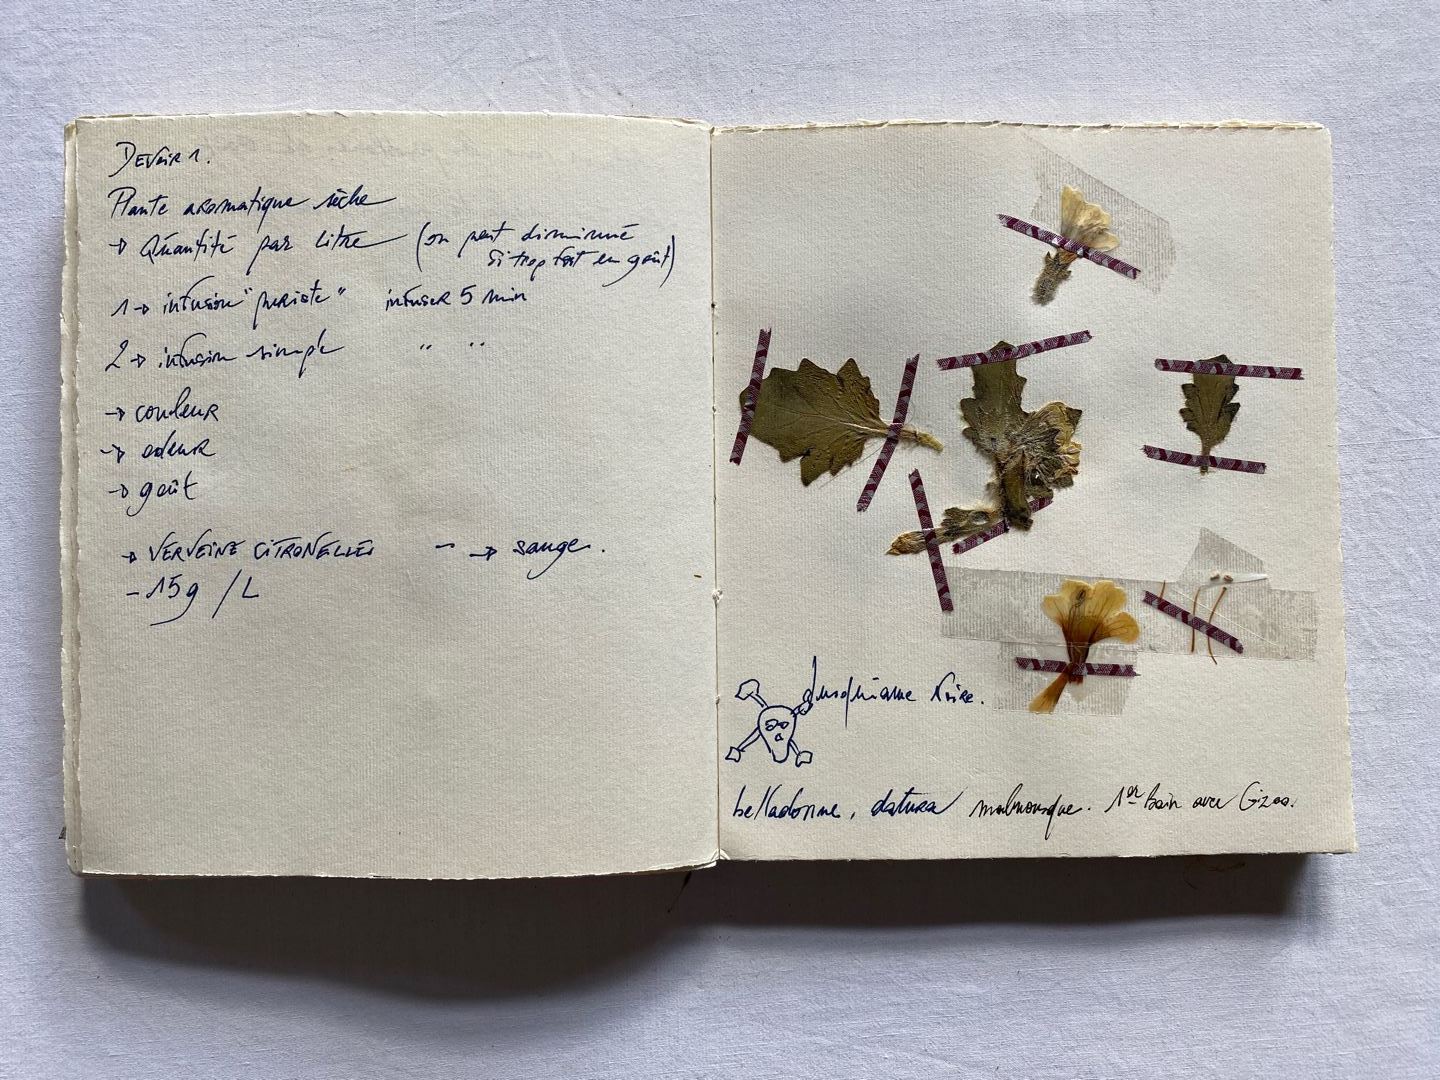 Devoir 1.
Plante aromatique sèche
→ Quantité par Litre (on peut diminué
si trop fort en goût)
1 → infusion "puriste" infuser 5 min
2 → infusion simple " "
→ couleur
→ odeur
→ goût
→ VERVEINE CITRONELLE → sauge.
- 15g /L
Jusquiame Noire.
belladonne, datura 1er bain avec